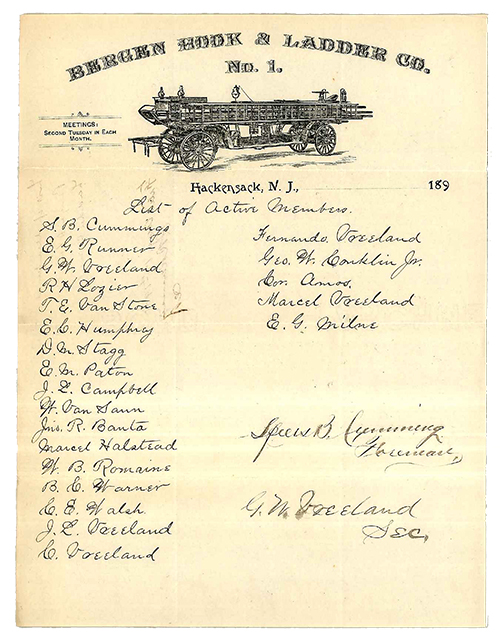 BERGEN HOOK & LADDER CO.
No. 1.
MEETINGS:
SECOND TUESDAY IN EACH
MONTH.
Hackensack, N. J., 189
List of Active Members.
S. B. Cummings
E. G. Runner
G. W. Vreeland
R H Lozier
T. E. Van Stone
E. C. Humphrey
D. M. Stagg
E. M. Paton
J. L. Campbell
W. Van Saun
Jno. R. Banta
Marcel Halstead
W. B. Romaine
B. E. Warner
C. E. Walsh
J. L. Vreeland
C. Vreeland
Fernando. Vreeland
Geo. W. Conklin Jr.
Cor. Amos.
Marcel Vreeland
E. G. Milne
B. Cumming
Foreman,
G. W. Vreeland
Sec,